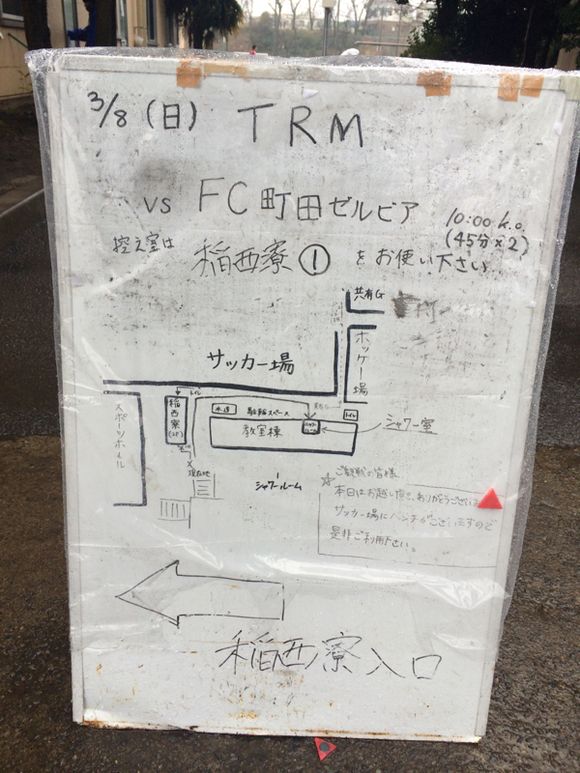 3/8 (日) TRM
vs FC町田ゼルビア
10:00 k.o.
(45分×2)
控え室は 稲西寮 ① をお使い下さい
共有G
ホッケー場
サッカー場
トイレ
稲西寮
水道
駐輪スペース
トイレ
教室棟
シャワー室
スポーツホール
現在地
シャワールーム
☆ ご観戦の皆様
本日はお越し頂き、ありがとうござい
サッカー場にベンチがございますので
是非ご利用下さい。
稲西寮入口